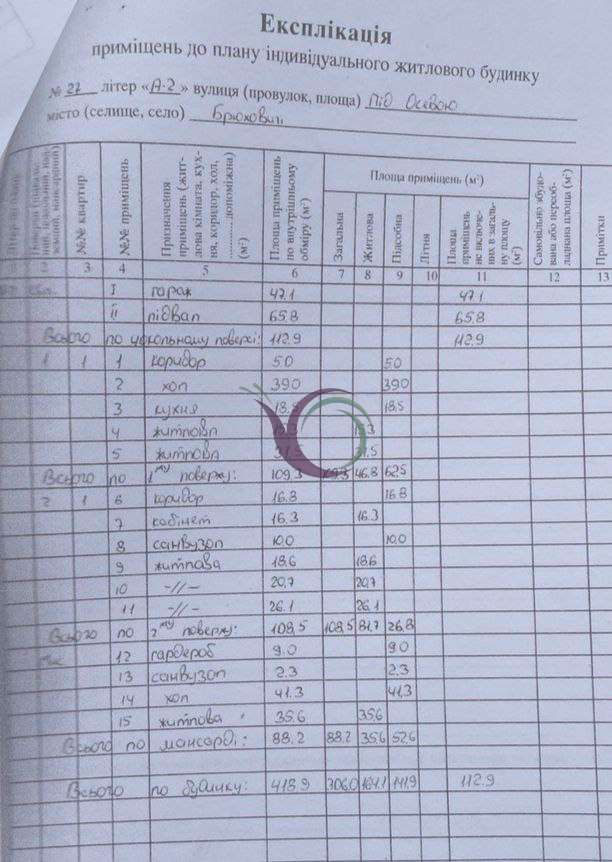 Експлікація
приміщень до плану індивідуального житлового будинку
№ 27 літер «А-2» вулиця (провулок, площа) Під Осовою
місто (селище, село) Брюховичі
№№ квартир №№ приміщень Призначення приміщень (житлова кімната, кухня, коридор, хол, ............допоміжна) (м²) Площа приміщень по внутрішньому обміру (м²) Площа приміщень (м²) Загальна Житлова Підсобна Літня Площа приміщень не включених в загальну площу (м²) Самовільно збудована або переобладнана площа (м²) Примітки
3 4 5 6 7 8 9 10 11 12 13
I гараж 47.1 47.1
II підвал 65.8 65.8
Всього по цокольному поверхі: 112.9 112.9
1 1 1 коридор 5.0 5.0
2 хол 39.0 39.0
3 кухня 18.5 18.5
4 житлова
5 житлова
Всього по 1му поверху: 109.3 109.3 46.8 62.5
2 1 6 коридор 16.8 16.8
7 кабінет 16.3 16.3
8 санвузол 10.0 10.0
9 житлова 18.6 18.6
10 -//- 20.7 20.7
11 -//- 26.1 26.1
Всього по 2му поверху: 108.5 108.5 81.7 26.8
12 гардероб 9.0 9.0
13 санвузол 2.3 2.3
14 хол 41.3 41.3
15 житлова 35.6 35.6
Всього по мансарді: 88.2 88.2 35.6 52.6
Всього по будинку: 418.9 306.0 164.1 141.9 112.9